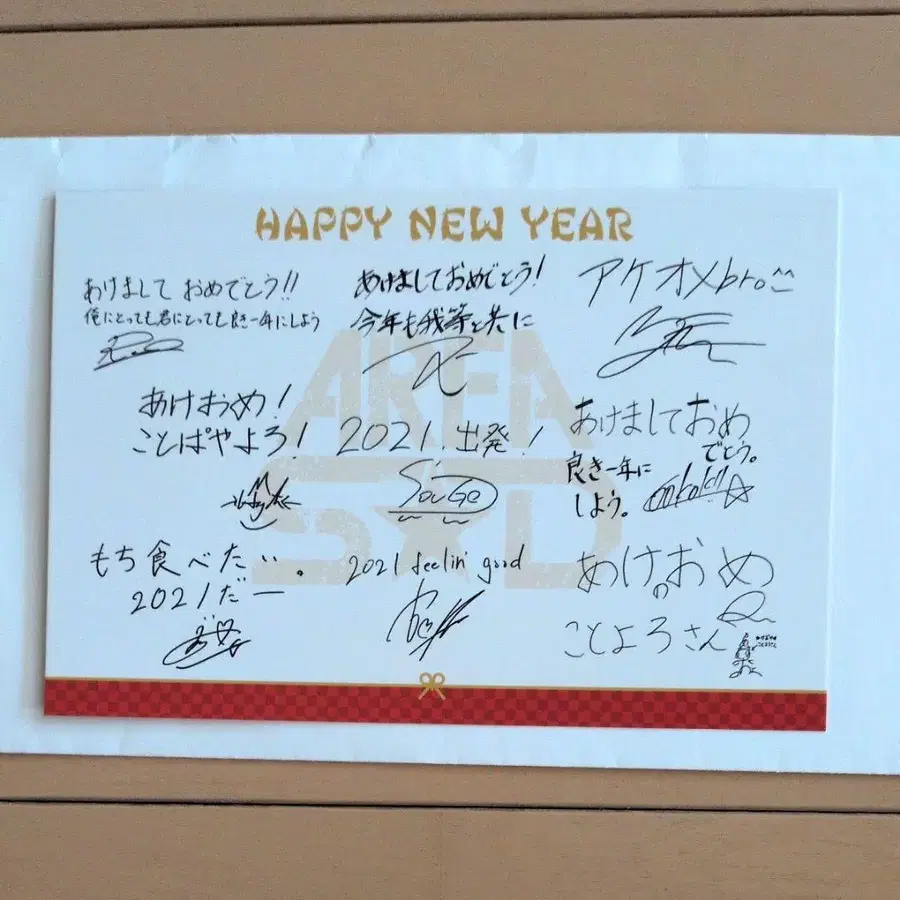 HAPPY NEW YEAR
あけまして おめでとう!!
俺にとっても君にとっても良き一年にしよう
あけましておめでとう!
今年も我等と共に
アケオメbro^^
あけおめ!
ことぱやよろ!
2021.出発!
SouGo
あけましておめ
でとう。
良き一年に
しよう。
もち食べた…。
2021だー
2021 feelin' good
あけおめ
ことよろさん
AREA
SD